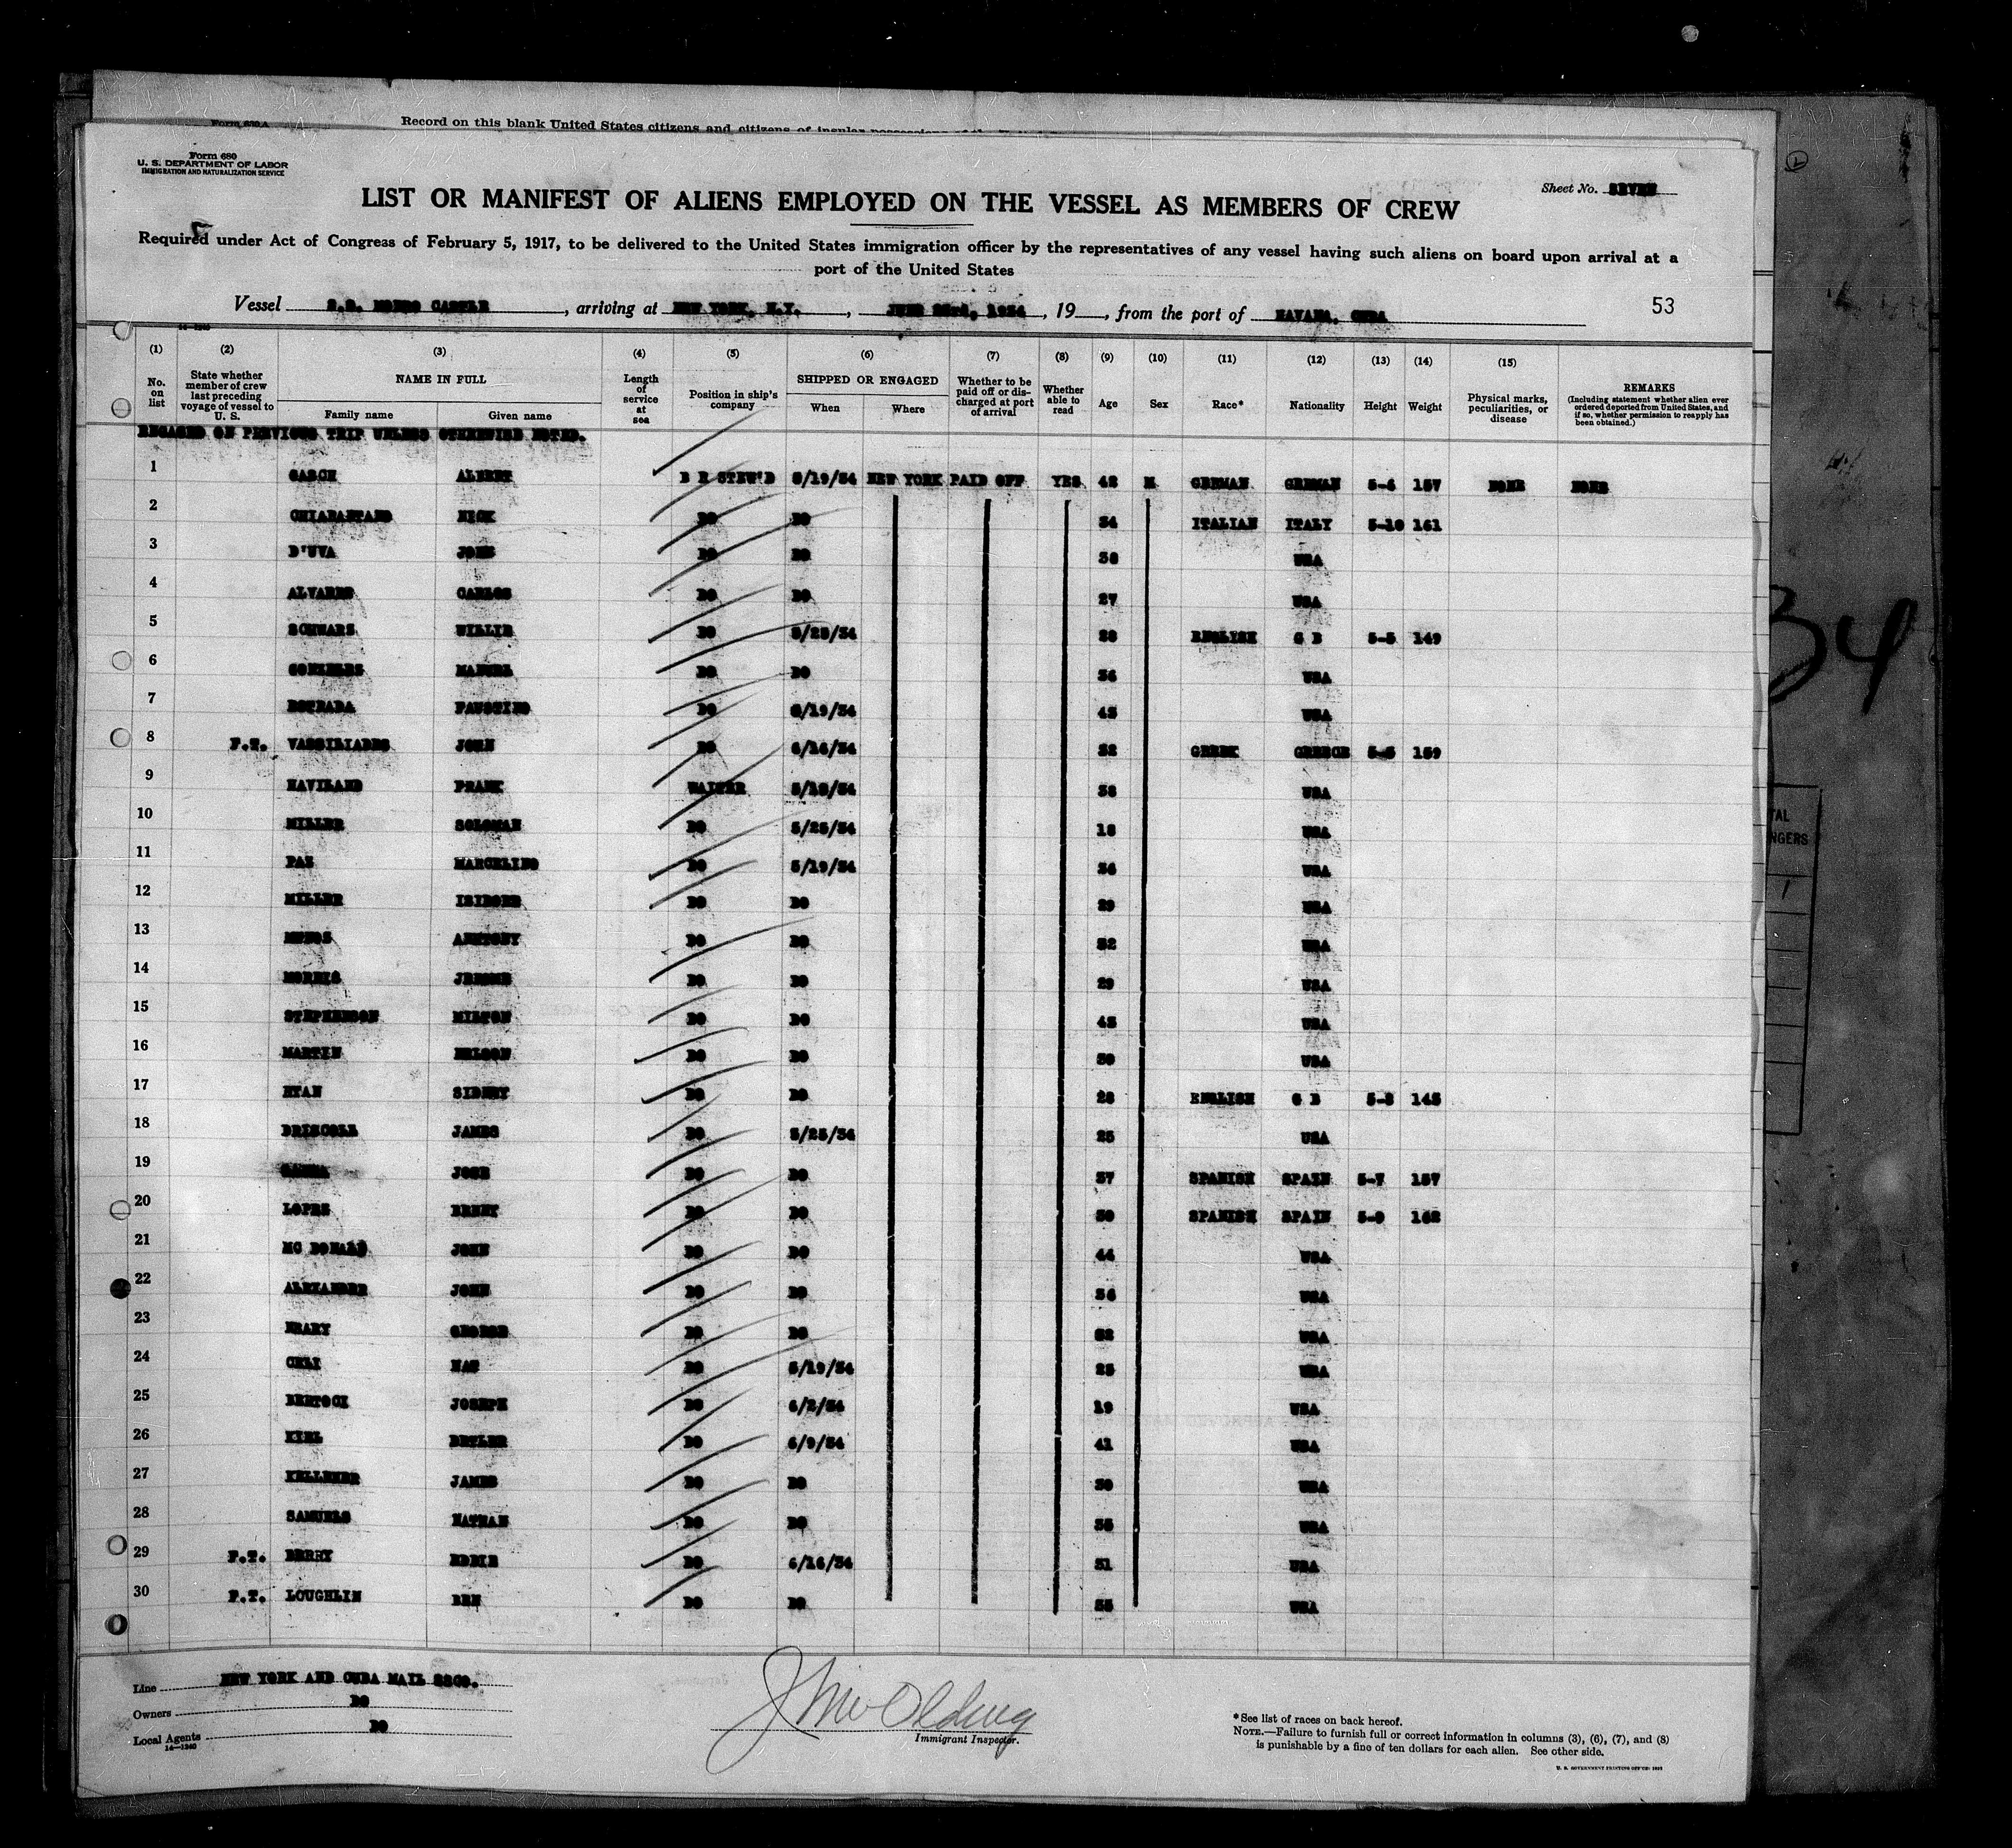 Form 680 A
Record on this blank United States citizens and citizens of insular possessions of the
Form 680
U. S. DEPARTMENT OF LABOR
IMMIGRATION AND NATURALIZATION SERVICE
Sheet No. SEVEN
LIST OR MANIFEST OF ALIENS EMPLOYED ON THE VESSEL AS MEMBERS OF CREW
Required under Act of Congress of February 5, 1917, to be delivered to the United States immigration officer by the representatives of any vessel having such aliens on board upon arrival at a
port of the United States
Vessel S.S. MORRO CASTLE, arriving at NEW YORK, N.Y., JUNE 23rd, 1934, 19, from the port of HAVANA, CUBA
53
14-1240
(1) (2) (3) (4) (5) (6) (7) (8) (9) (10) (11) (12) (13) (14) (15)
No. on list State whether member of crew last preceding voyage of vessel to U. S. NAME IN FULL Family name Given name Length of service at sea Position in ship's company SHIPPED OR ENGAGED When Where Whether to be paid off or discharged at port of arrival Whether able to read Age Sex Race* Nationality Height Weight Physical marks, peculiarities, or disease REMARKS (Including statement whether alien ever ordered deported from United States, and if so, whether permission to reapply has been obtained.)
ENGAGED ON PREVIOUS TRIP UNLESS OTHERWISE NOTED.
1 GASCH ALBERT B R STEW'D 5/19/34 NEW YORK PAID OFF YES 42 M GERMAN GERMAN 5-4 157 NONE NONE
2 NICK DO DO 34 ITALIAN ITALY 5-10 161
3 D'UVA JOHN DO DO USA
4 ALVARES CARLOS DO DO 27 USA
5 SCHWARS WILLIE DO 5/25/34 ENGLISH G B 5-5 149
6 GONZALES MANUEL DO DO USA
7 ESTRADA FAUSTINO DO USA
8 F.T. VASSILIADES JOHN DO 6/16/34 GREEK GREECE 5-5 159
9 HAVILAND FRANK WAITER USA
10 MILLER SOLOMAN DO 5/25/34 18 USA
11 PAZ MARCELINO DO 5/19/34 USA
12 MILLER ISIDORE DO DO 29 USA
13 ANTHONY DO DO USA
14 MORRIS JEROME DO DO 29 USA
15 STEPHENSON MILTON DO DO USA
16 MARTIN NELSON DO DO USA
17 SIDNEY DO DO 28 ENGLISH G B 145
18 DRISCOLL JAMES DO 5/25/34 25 USA
19 JOSE DO DO 37 SPANISH SPAIN 5-7 157
20 LOPES BENNY DO DO SPANISH SPAIN 5-9 162
21 MC DONALD JOHN DO DO 44 USA
22 ALEXANDER JOHN DO DO USA
23 GEORGE DO DO USA
24 CELI DO 5/19/34 USA
25 BERTOCI JOSEPH DO 6/2/34 19 USA
26 DO 6/9/34 41 USA
27 KELLEHER JAMES DO DO USA
28 SAMUELS NATHAN DO DO USA
29 F.T. BERRY EDDIE DO 6/16/34 31 USA
30 F.T. LOUGHLIN BEN DO DO USA
Line NEW YORK AND CUBA MAIL SSCO.
Owners DO
Local Agents DO
14-1240
Immigrant Inspector.
*See list of races on back hereof.
NOTE.—Failure to furnish full or correct information in columns (3), (6), (7), and (8)
is punishable by a fine of ten dollars for each alien. See other side.
U. S. GOVERNMENT PRINTING OFFICE: 1931
34